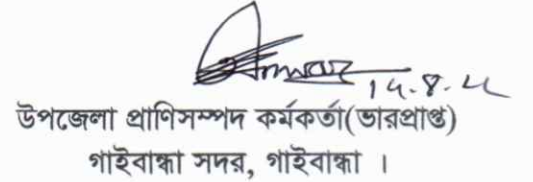 উপজেলা প্রাণিসম্পদ কর্মকর্তা(ভারপ্রাপ্ত)
গাইবান্ধা সদর, গাইবান্ধা ।